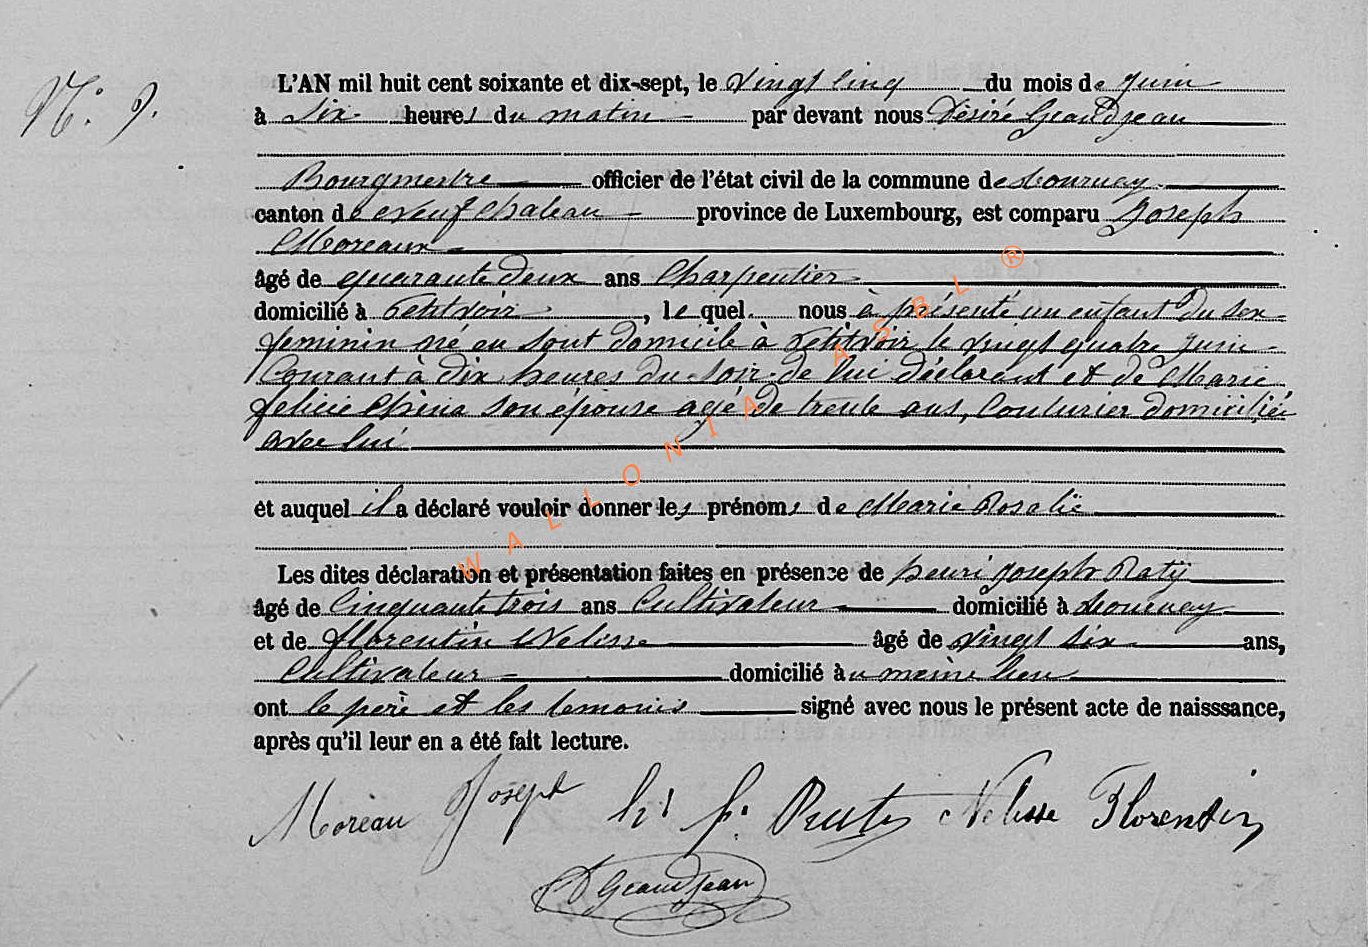 N.° 9.
L'AN mil huit cent soixante et dix-sept, le vingt cinq du mois de juin
à six heures du matin par devant nous Désiré Grandjean
Bourgmestre officier de l'état civil de la commune de Tournay
canton de Neufchateau province de Luxembourg, est comparu Joseph
Moreaux
âgé de quarante deux ans Charpentier
domicilié à Petitvoir, le quel nous à présenté un enfant du sex
feminin né en sont domicile à Petitvoir le vingt quatre juin
Courant à dix heures du soir de lui déclarent et de Marie
felicie son épouse agé de trente ans, Couturier domiciliée
avec lui
et auquel il a déclaré vouloir donner les prénoms de Marie Rosalie
Les dites déclaration et présentation faites en présence de henri joseph Raty
âgé de Cinquante trois ans Cultivateur domicilié à Tournay
et de florentin Nelisse âgé de vingt six ans,
Cultivateur domicilié au même lieu
ont le père et les temoins signé avec nous le présent acte de naisssance,
après qu'il leur en a été fait lecture.
Moreau Joseph h. j. Raty Nelisse Florentin
D Grandjean
WALLONIA ASBL ®